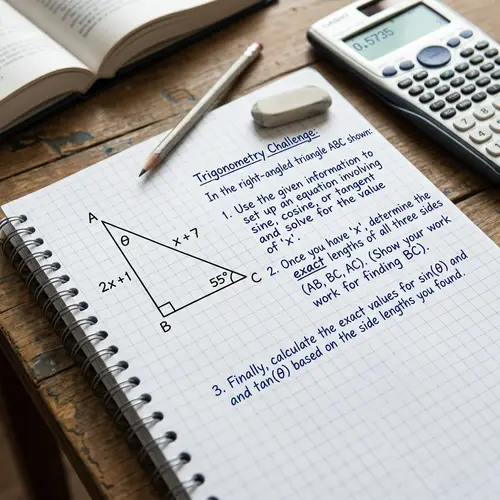 CASIO
0.5735
Trigonometry Challenge:
In the right-angled triangle ABC shown:
1. Use the given information to
set up an equation involving
sine, cosine, or tangent
and solve for the value
of 'x'.
2. Once you have 'x', determine the
exact lengths of all three sides
(AB, BC, AC). (Show your work
work for finding BC).
3. Finally, calculate the exact values for sin(θ) and
and tan(θ) based on the side lengths you found.
A
θ
x+7
2x+1
55°
C
B